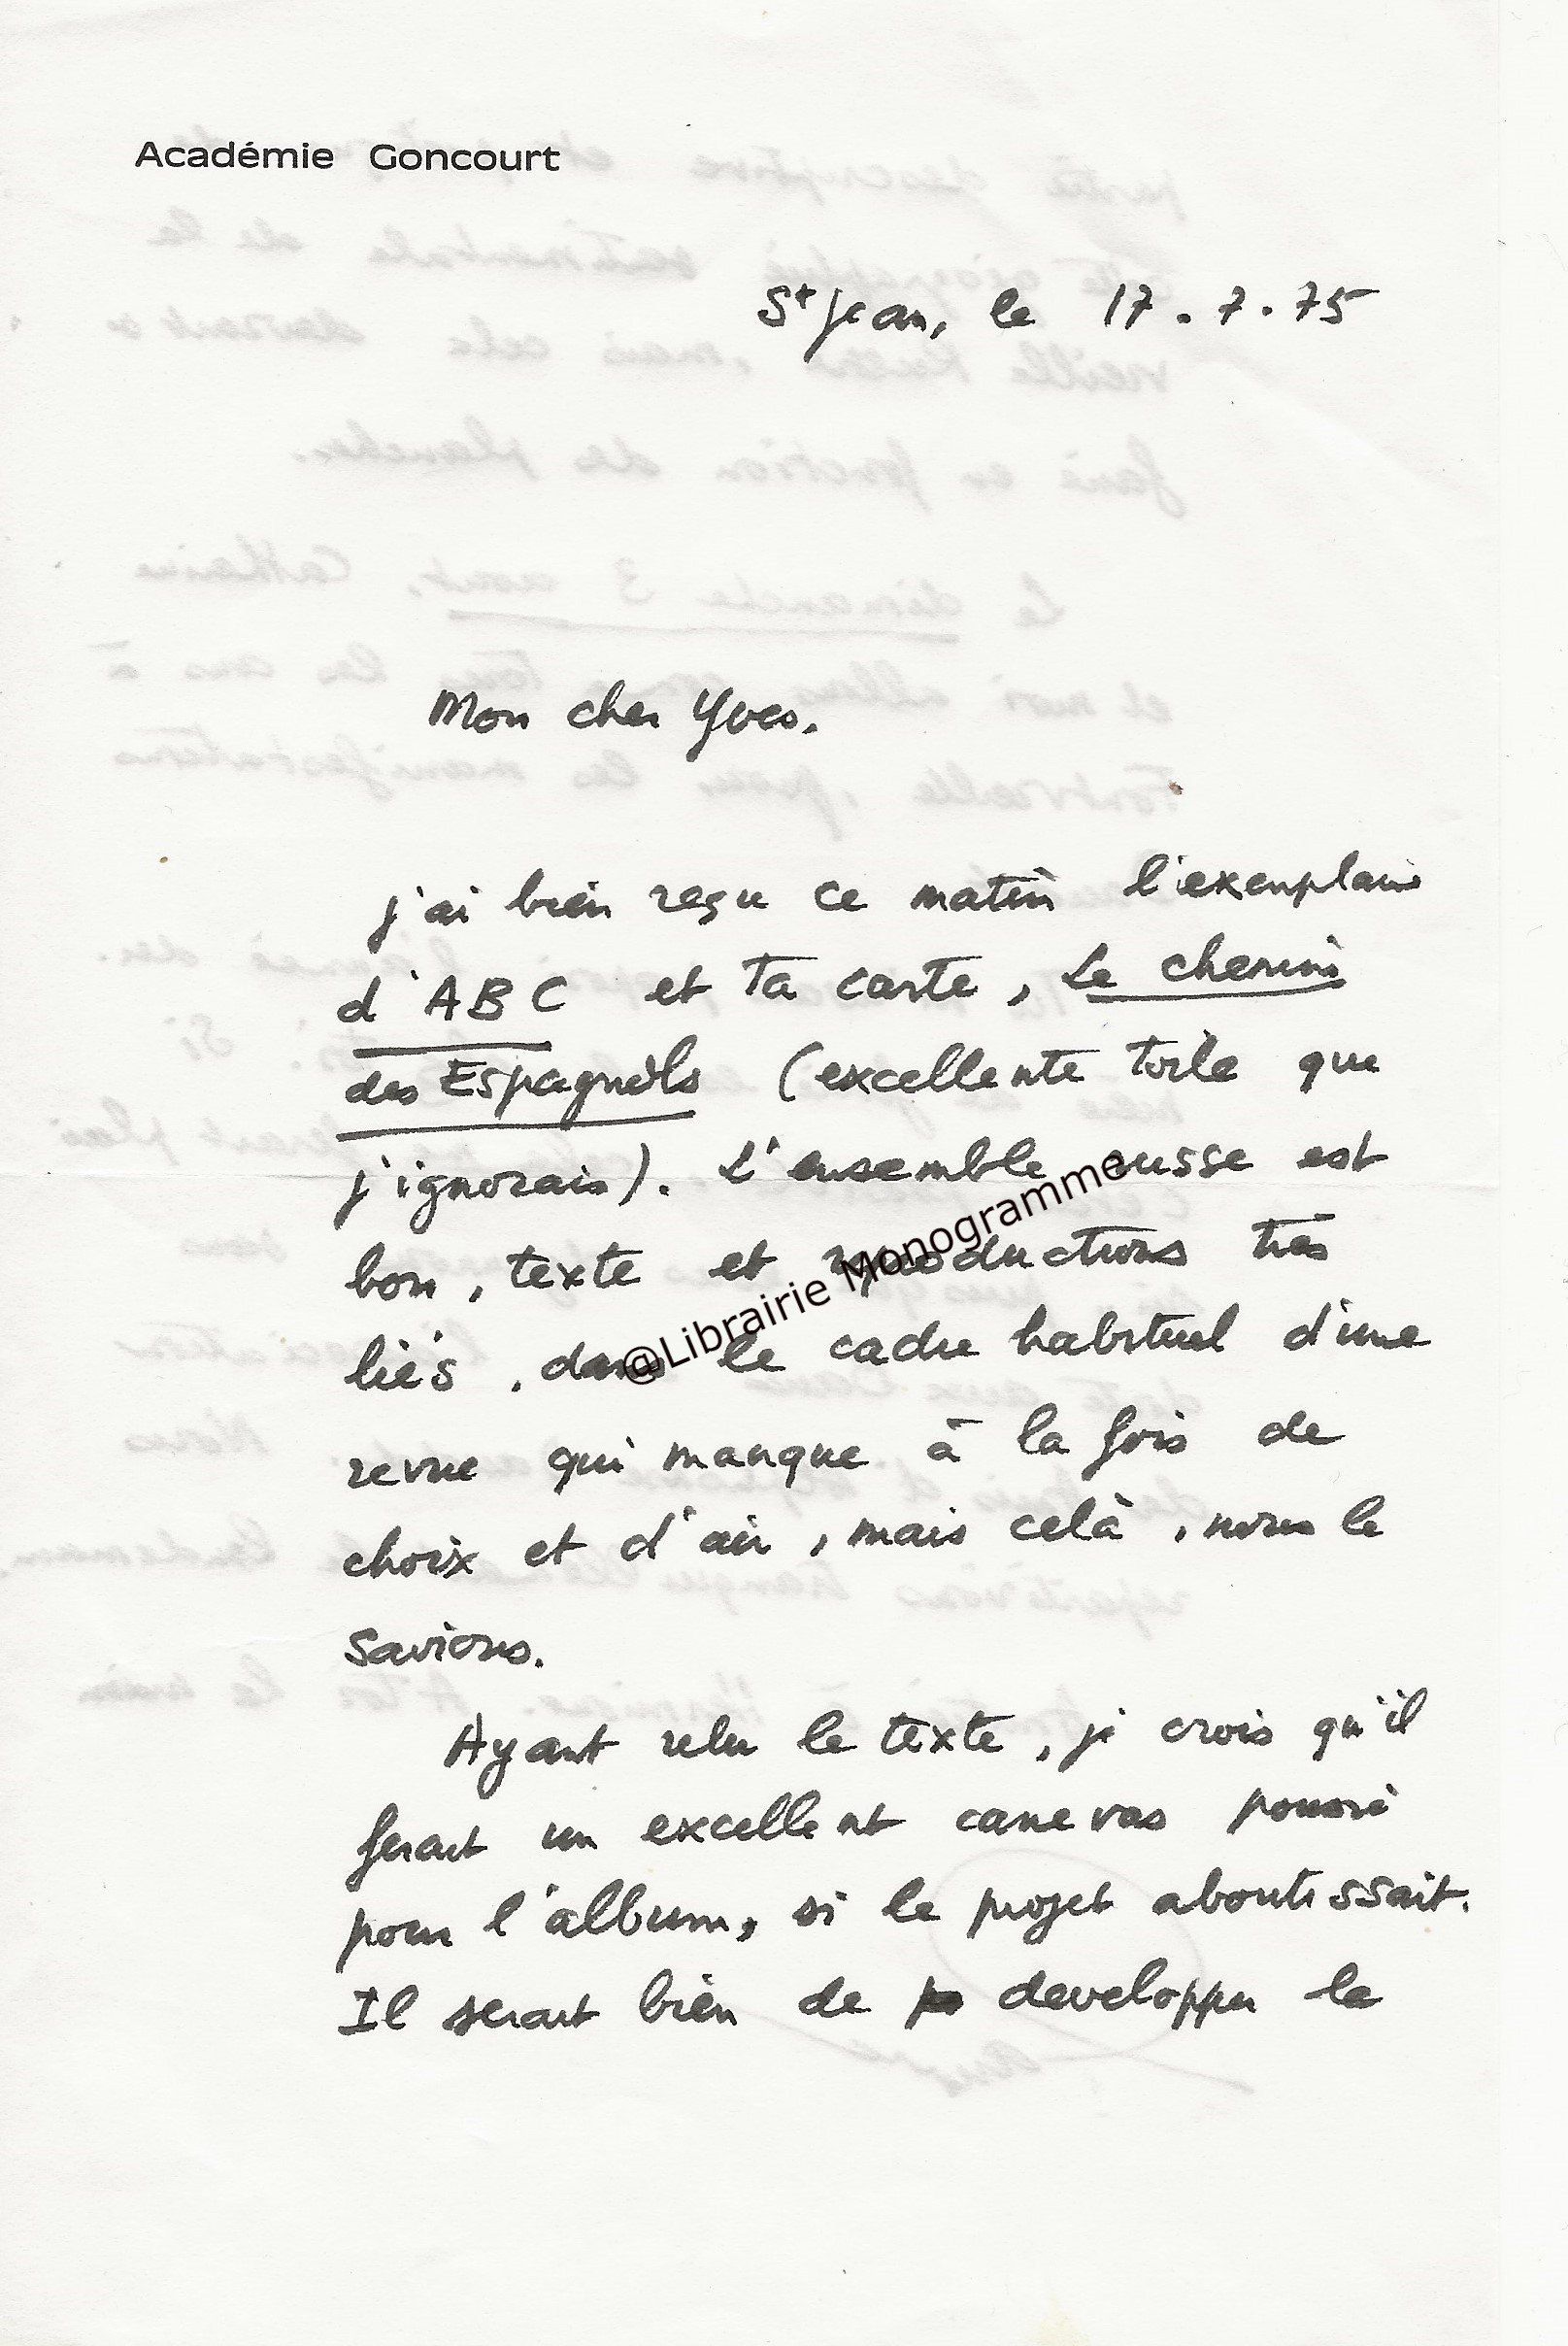 Académie Goncourt
St Jean, le 17.7.75
Mon cher Yves.
j'ai bien reçu ce matin l'exemplaire
d'ABC et ta carte, Le chemin
des Espagnols (excellente toile que
j'ignorais). L'ensemble russe est
bon, texte et reproductions très
liés, dans le cadre habituel d'une
revue qui manque à la fois de
choix et d'air, mais celà, nous le
savions.
Ayant relu le texte, je crois qu'il
ferait un excellent canevas
pour l'album, si le projet aboutissait.
Il serait bien de developper le
@Librairie Monogramme